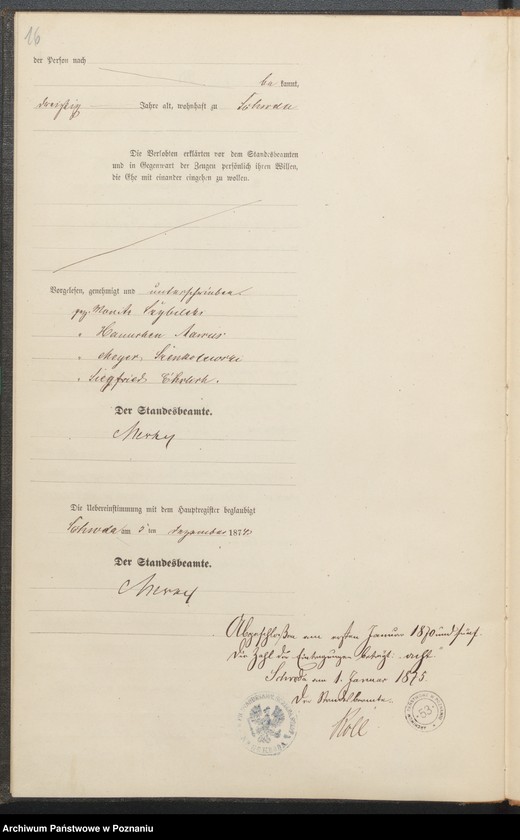 16
der Person nach
be kannt,
dreißig Jahre alt, wohnhaft zu Schroda
Die Verlobten erklärten vor dem Standesbeamten
und in Gegenwart der Zeugen persönlich ihren Willen,
die Ehe mit einander eingehen zu wollen.
Vorgelesen, genehmigt und unterschrieben
gez. Moritz
" Hannchen
" Meyer
" Siegfried
Der Standesbeamte.
Die Uebereinstimmung mit dem Hauptregister beglaubigt
Schroda am ten Dezember 1874
Der Standesbeamte.
Abgeschloßen am ersten Januar 1870 und fünf.
Die Zahl der Eintragungen beträgt: "acht"
Schroda am 1. Januar 1875.
Der Standesbeamte
Roll
53
Archiwum Państwowe w Poznaniu